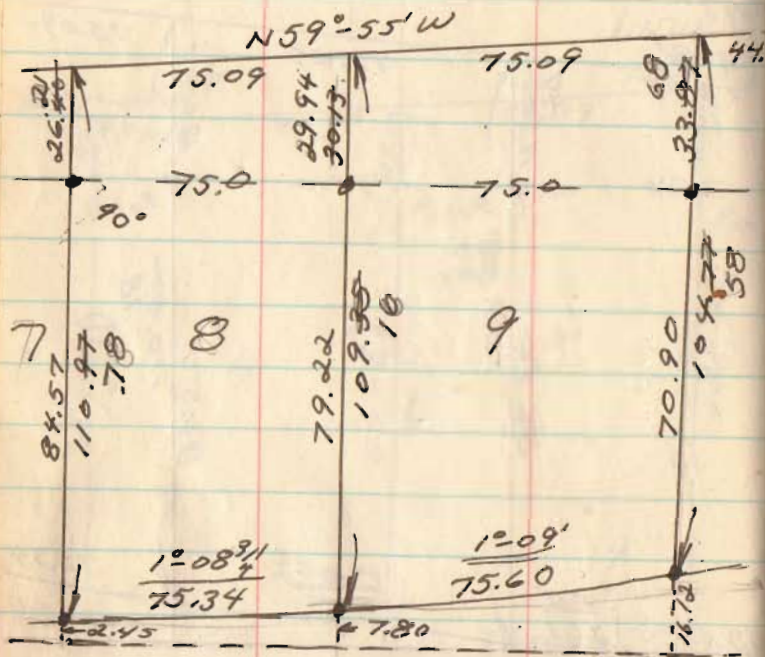 N 59°-55' W
75.09
75.09
44.
26.40
21
29.94
30.15
68
33.87
75.0
75.0
90°
7
8
9
84.57
110.97
.78
79.22
109.35
16
70.90
104.77
58
1°-08 3/4
75.34
1°-09'
75.60
2.45
7.80
16.72